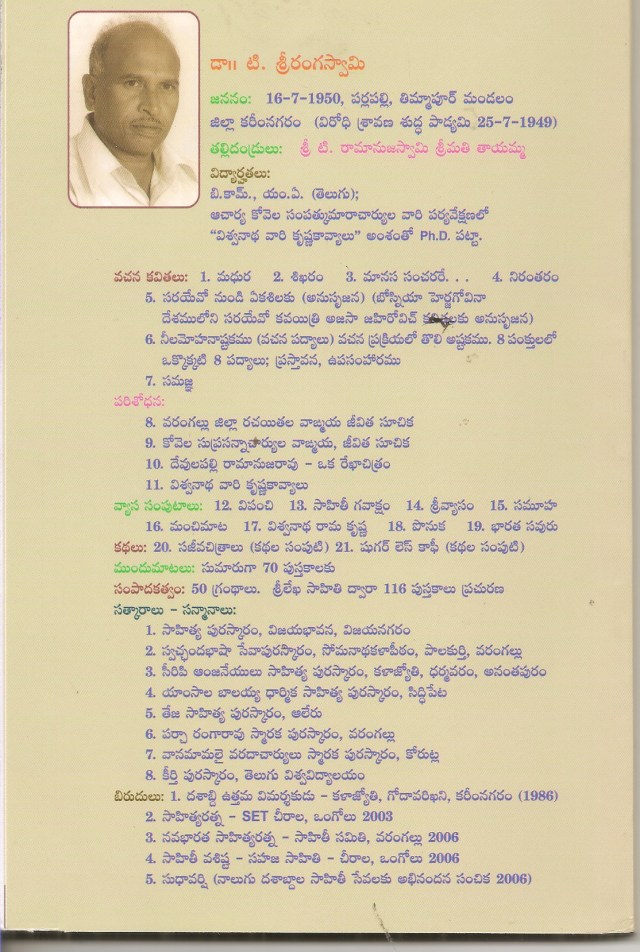 డా॥ టి. శ్రీరంగస్వామి
జననం: 16-7-1950, పర్లపల్లి, తిమ్మాపూర్ మండలం
జిల్లా కరీంనగరం (విరోధి శ్రావణ శుద్ధ పాడ్యమి 25-7-1949)
తల్లిదండ్రులు: శ్రీ టి. రామానుజస్వామి శ్రీమతి తాయమ్మ
విద్యార్హతలు:
బి.కామ్., యం.ఏ. (తెలుగు);
ఆచార్య కోవెల సంపత్కుమారాచార్యుల వారి పర్యవేక్షణలో
"విశ్వనాథ వారి కృష్ణకావ్యాలు" అంశంతో Ph.D. పట్టా.
వచన కవితలు: 1. మధుర 2. శిఖరం 3. మానస సంచరరే. . . 4. నిరంతరం
5. సరయేవో నుండి ఏకశిలకు (అనుసృజన) (బోస్నియా హెర్జిగోవినా
దేశములోని సరయేవో కవయిత్రి అజసా జహిరోవిచ్ కవితలకు అనుసృజన)
6. నీలమోహనాష్టకము (వచన పద్యాలు) వచన ప్రక్రియలో తొలి అష్టకము. 8 పంక్తులలో
ఒక్కొక్కటి 8 పద్యాలు; ప్రస్తావన, ఉపసంహారము
7. సమజ్ఞ
పరిశోధన:
8. వరంగల్లు జిల్లా రచయితల వాఙ్మయ జీవిత సూచిక
9. కోవెల సుప్రసన్నాచార్యుల వాఙ్మయ, జీవిత సూచిక
10. దేవులపల్లి రామానుజరావు - ఒక రేఖాచిత్రం
11. విశ్వనాథ వారి కృష్ణకావ్యాలు
వ్యాస సంపుటాలు: 12. విపంచి 13. సాహితీ గవాక్షం 14. శ్రీవ్యాసం 15. సమూహ
16. మంచిమాట 17. విశ్వనాథ రామ కృష్ణ 18. పొనుక 19. భారత సవురు
కథలు: 20. సజీవచిత్రాలు (కథల సంపుటి) 21. షుగర్ లెస్ కాఫీ (కథల సంపుటి)
ముందుమాటలు: సుమారుగా 70 పుస్తకాలకు
సంపాదకత్వం: 50 గ్రంథాలు. శ్రీలేఖ సాహితి ద్వారా 116 పుస్తకాలు ప్రచురణ
సత్కారాలు - సన్మానాలు:
1. సాహిత్య పురస్కారం, విజయభావన, విజయనగరం
2. స్వచ్ఛందభాషా సేవాపురస్కారం, సోమనాథకళాపీఠం, పాలకుర్తి, వరంగల్లు
3. సిరిపి ఆంజనేయులు సాహిత్య పురస్కారం, కళాజ్యోతి, ధర్మవరం, అనంతపురం
4. యాంసాల బాలయ్య ధార్మిక సాహిత్య పురస్కారం, సిద్ధిపేట
5. తేజ సాహిత్య పురస్కారం, ఆలేరు
6. పర్చా రంగారావు స్మారక పురస్కారం, వరంగల్లు
7. వానమామలై వరదాచార్యులు స్మారక పురస్కారం, కోరుట్ల
8. కీర్తి పురస్కారం, తెలుగు విశ్వవిద్యాలయం
బిరుదులు: 1. దశాబ్ది ఉత్తమ విమర్శకుడు - కళాజ్యోతి, గోదావరిఖని, కరీంనగరం (1986)
2. సాహిత్యరత్న - SET చీరాల, ఒంగోలు 2003
3. నవభారత సాహిత్యరత్న - సాహితీ సమితి, వరంగల్లు 2006
4. సాహితీ వశిష్ట - సహజ సాహితి - చీరాల, ఒంగోలు 2006
5. సుధావర్షి (నాలుగు దశాబ్దాల సాహితీ సేవలకు అభినందన సంచిక 2006)